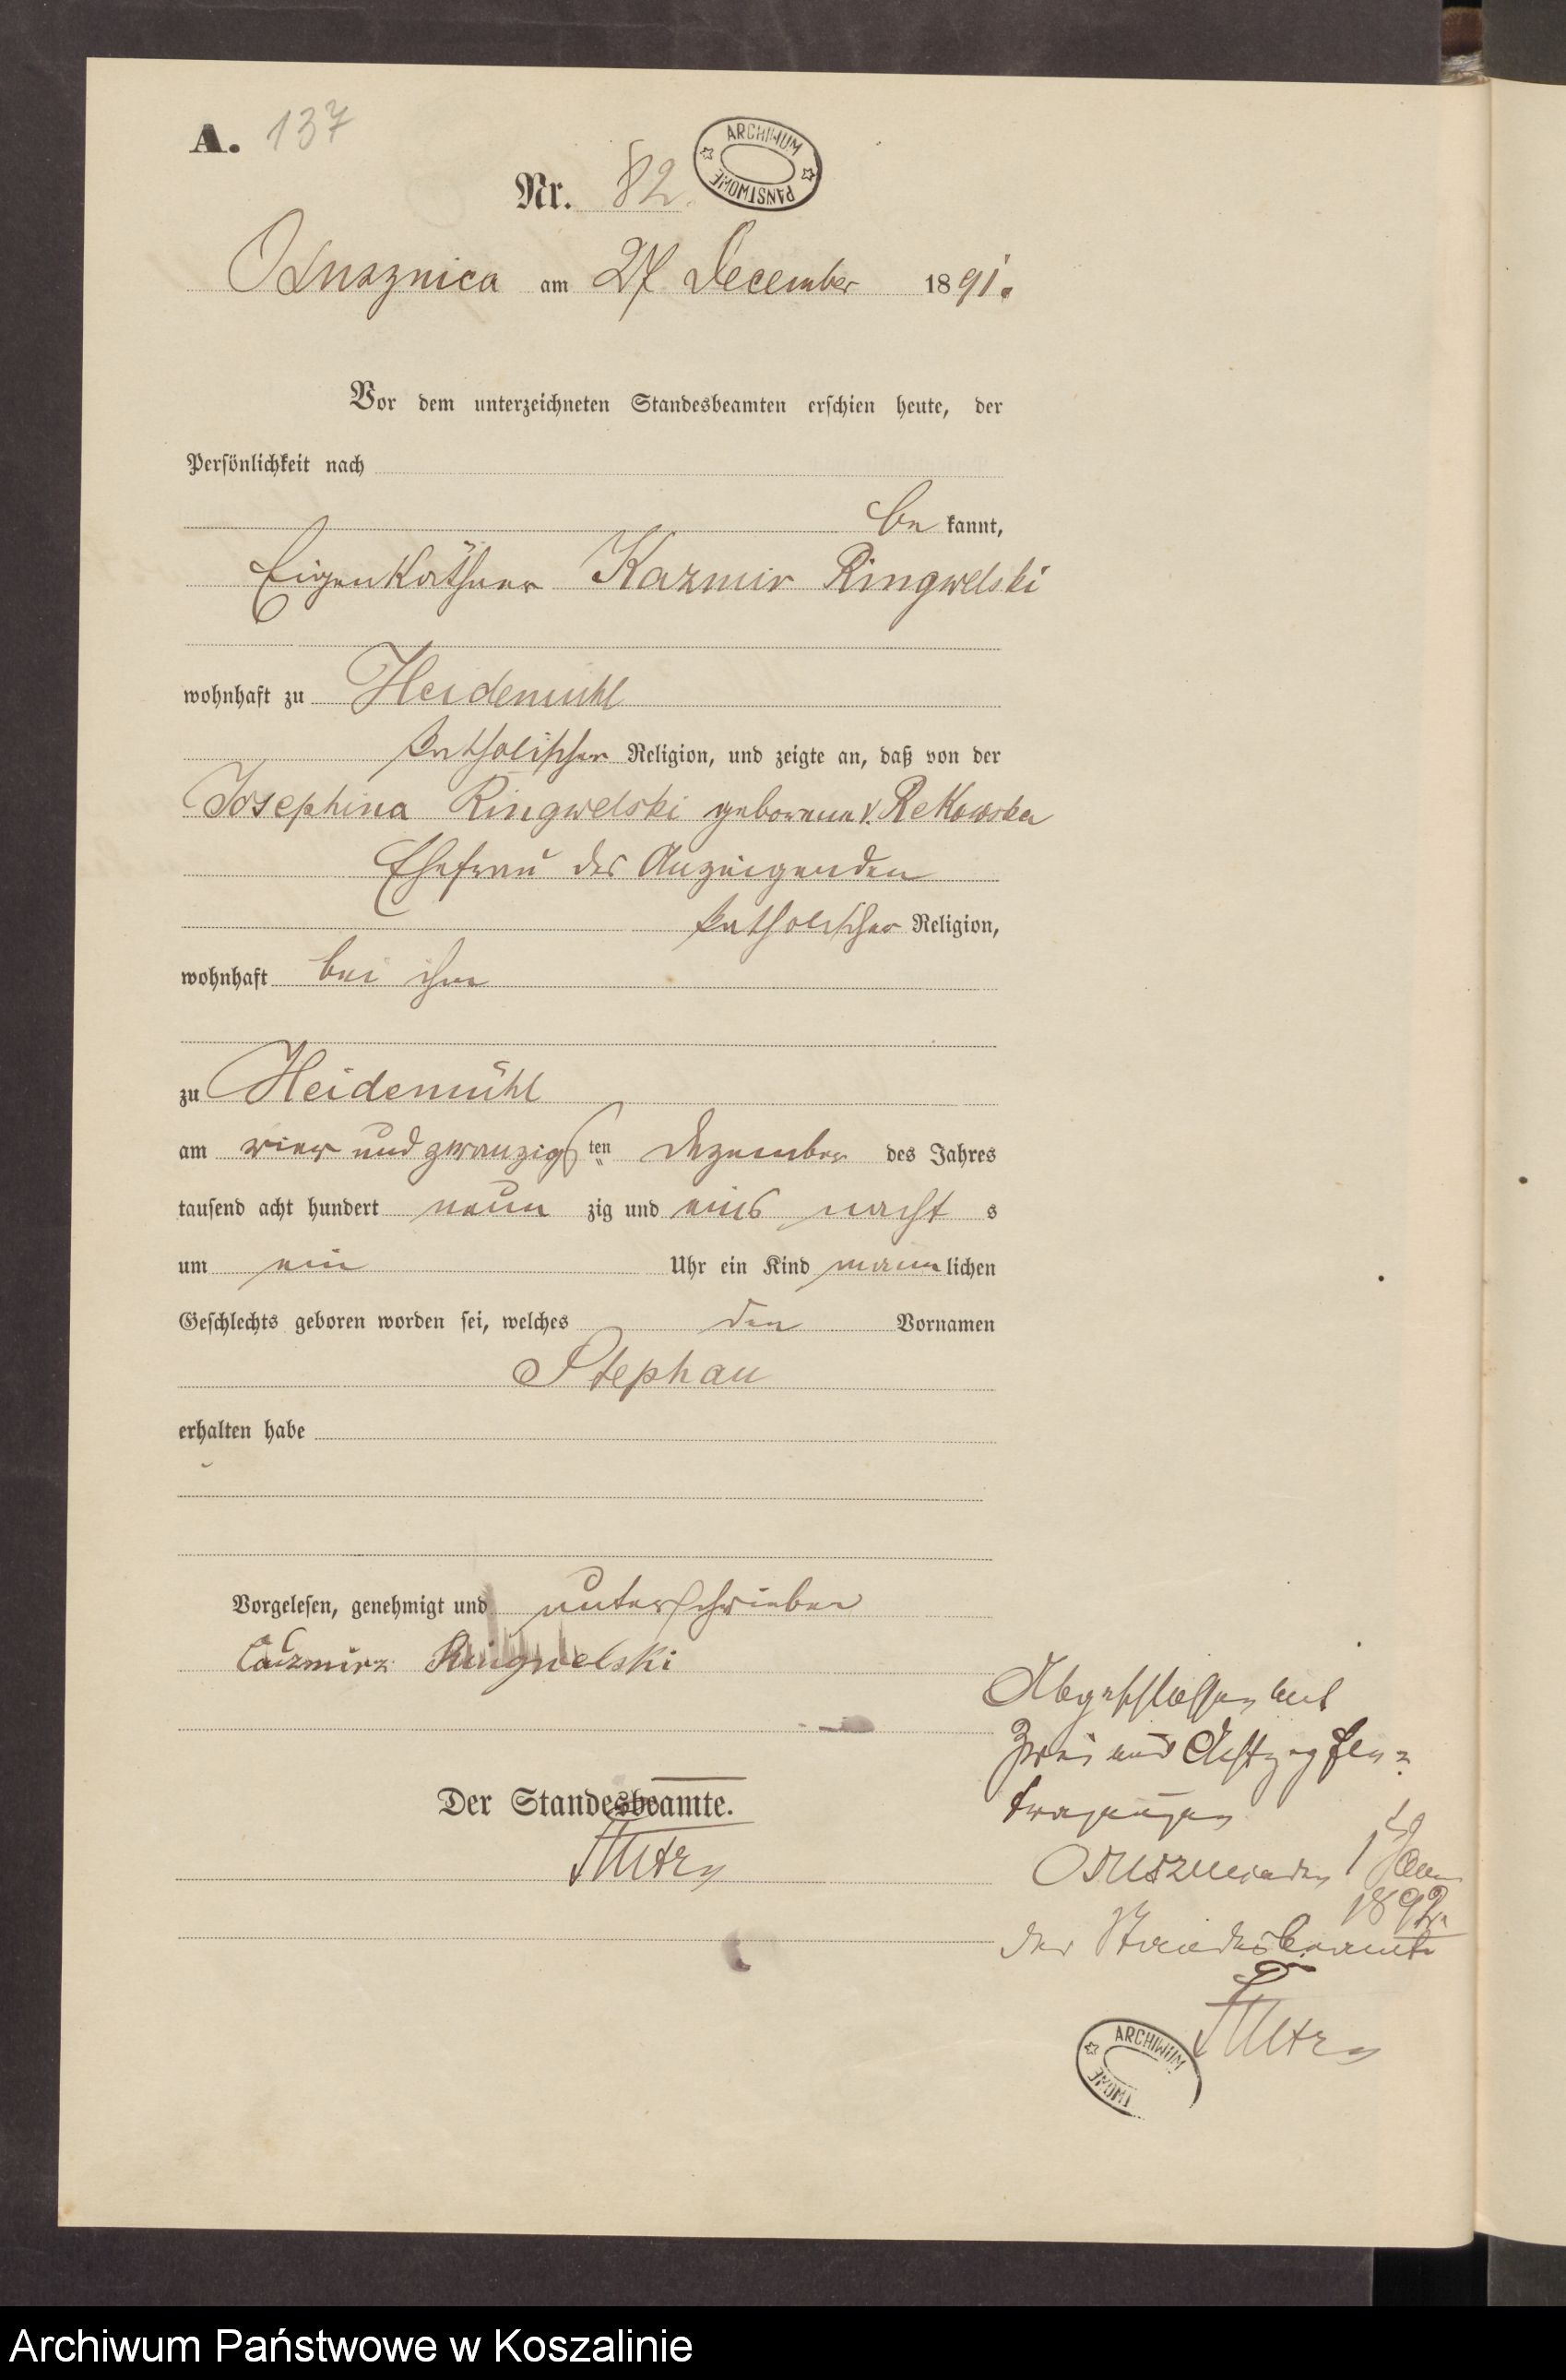 A. 137
ARCHIWUM PAŃSTWOWE
Nr. 82.
Osusznica am 27 December 1891.
Vor dem unterzeichneten Standesbeamten erschien heute, der
Persönlichkeit nach
be kannt,
Eigenkäthner Kazmir Ringwelski
wohnhaft zu Heidemühl
katholischer Religion, und zeigte an, daß von der
Josephina Ringwelski geborene v. Rekowska
Ehefrau des Anzeigenden
katholischer Religion,
wohnhaft bei ihm
zu Heidemühl
am vier und zwanzigsten Dezember des Jahres
tausend acht hundert neun zig und eins nacht s
um ein Uhr ein Kind männlichen
Geschlechts geboren worden sei, welches den Vornamen
Stephan
erhalten habe
Vorgelesen, genehmigt und unterschrieben
Cazmirz Ringwelski
Der Standesbeamte.
Abgeschlossen mit
Zwei und Achtzig Ein=
tragungen
1 Jan
1892.
der Standesbeamte
ARCHIWUM
TWOWE
Archiwum Państwowe w Koszalinie